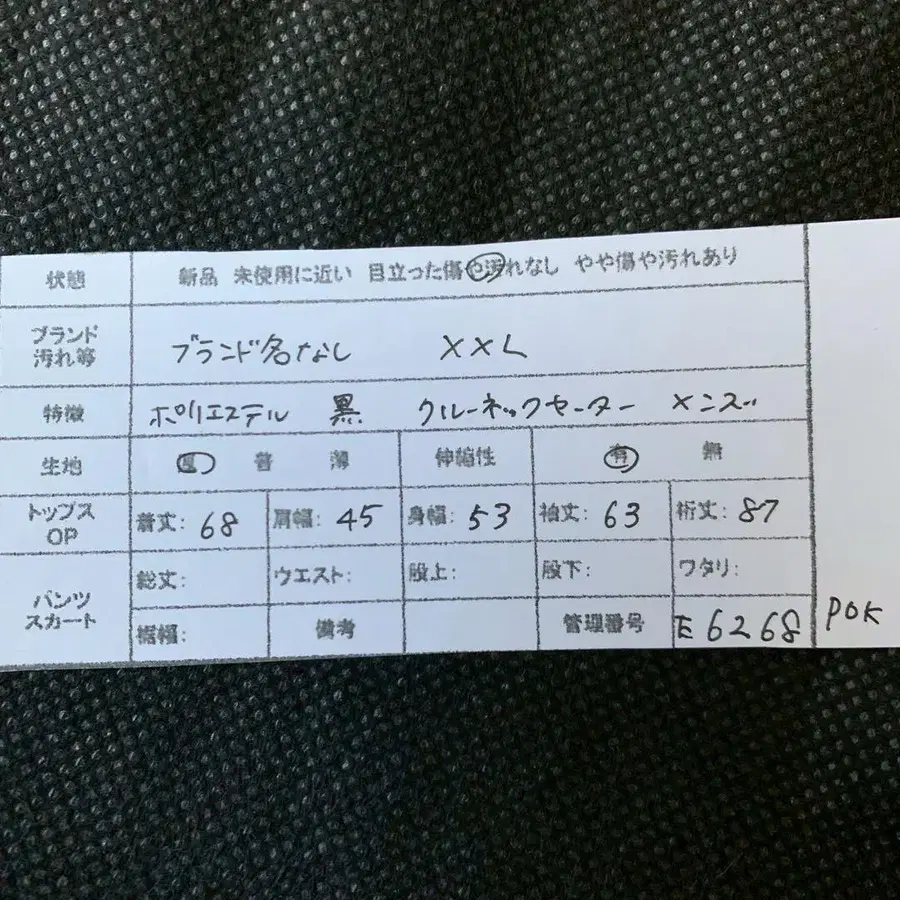 状態 新品 未使用に近い 目立った傷や汚れなし やや傷や汚れあり
ブランド 汚れ等 ブランド名なし XXL
特徴 ポリエステル 黒 クルーネックセーター メンズ
生地 厚 普 薄 伸縮性 有 無
トップス OP 着丈: 68 肩幅: 45 身幅: 53 袖丈: 63 裄丈: 87
パンツ スカート 総丈: ウエスト: 股上: 股下: ワタリ:
裾幅: 備考 管理番号 E6268 POK